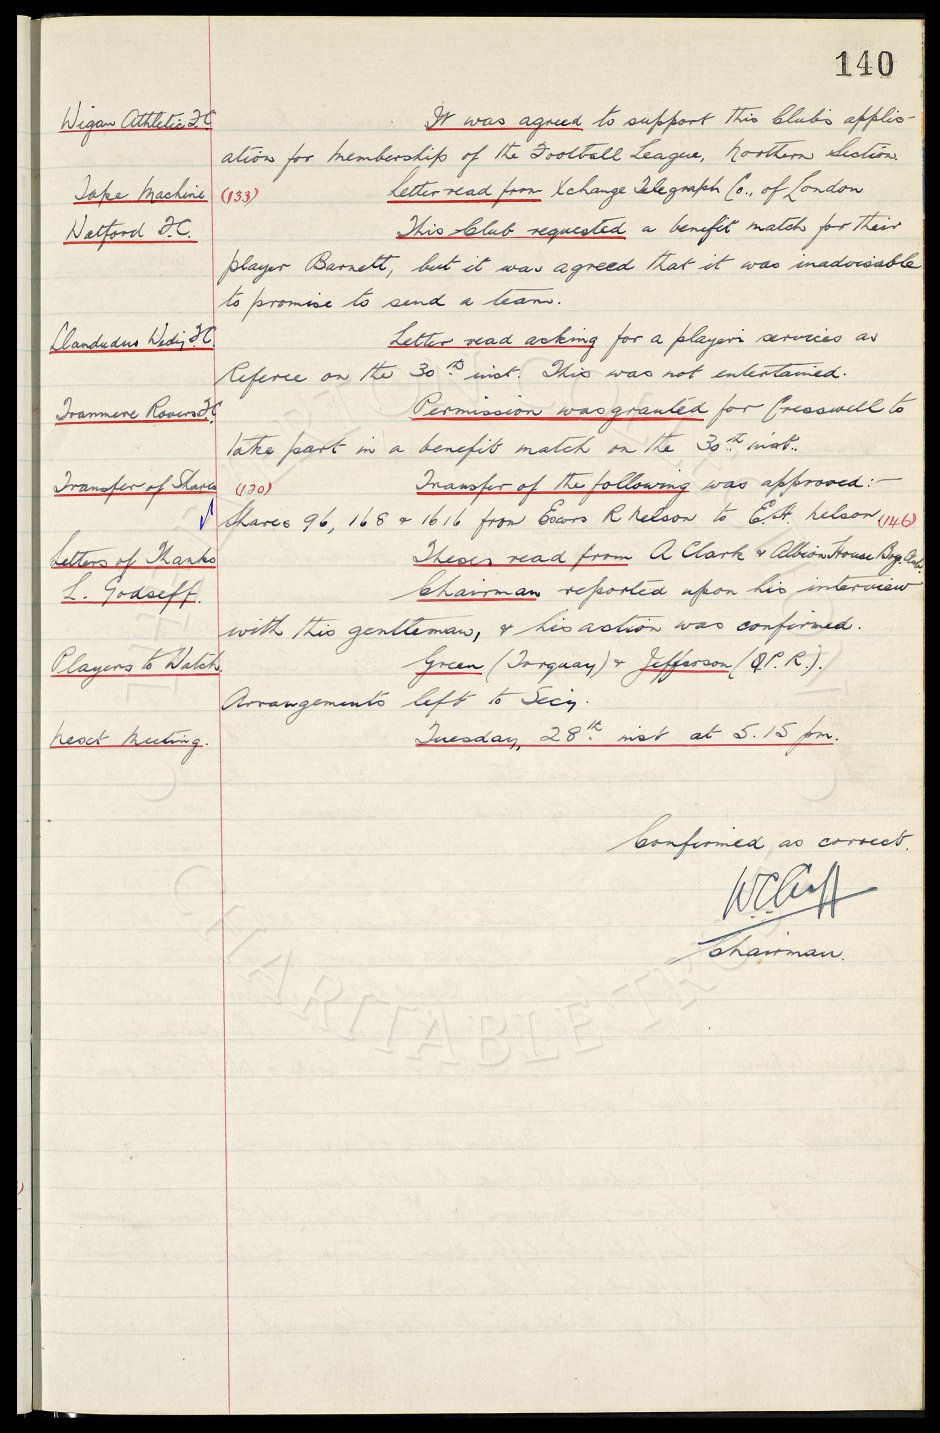 140
Wigan Athletic F.C. It was agreed to support this Club's applic-
ation for membership of the Football League, Northern Section.
Tape Machine (133) Letter read from Xchange Telegraph Co., of London
Watford F.C. This Club requested a benefit match for their
player Barnett, but it was agreed that it was inadvisable
to promise to send a team.
Llandudno Wedy F.C. Letter read asking for a player's services as
Referee on the 30th inst. This was not entertained.
Tranmere Rovers F.C. Permission was granted for Cresswell to
take part in a benefit match on the 30th inst.
Transfer of Shares (130) Transfer of the following was approved:-
Shares 96, 168 & 1616 from Exors R Nelson to E.H. Nelson (146)
Letters of Thanks These read from A Clark & Albion House Boys Club
L. Godseff. Chairman reported upon his interview
with this gentleman, & his action was confirmed.
Players to Watch. Green (Torquay) & Jefferson (Q.P.R.).
Arrangements left to Secy.
Next Meeting. Tuesday, 28th inst at 5.15 pm.
Confirmed as correct.
W.C. Cuff
Chairman.
CHARITABLE TRUST